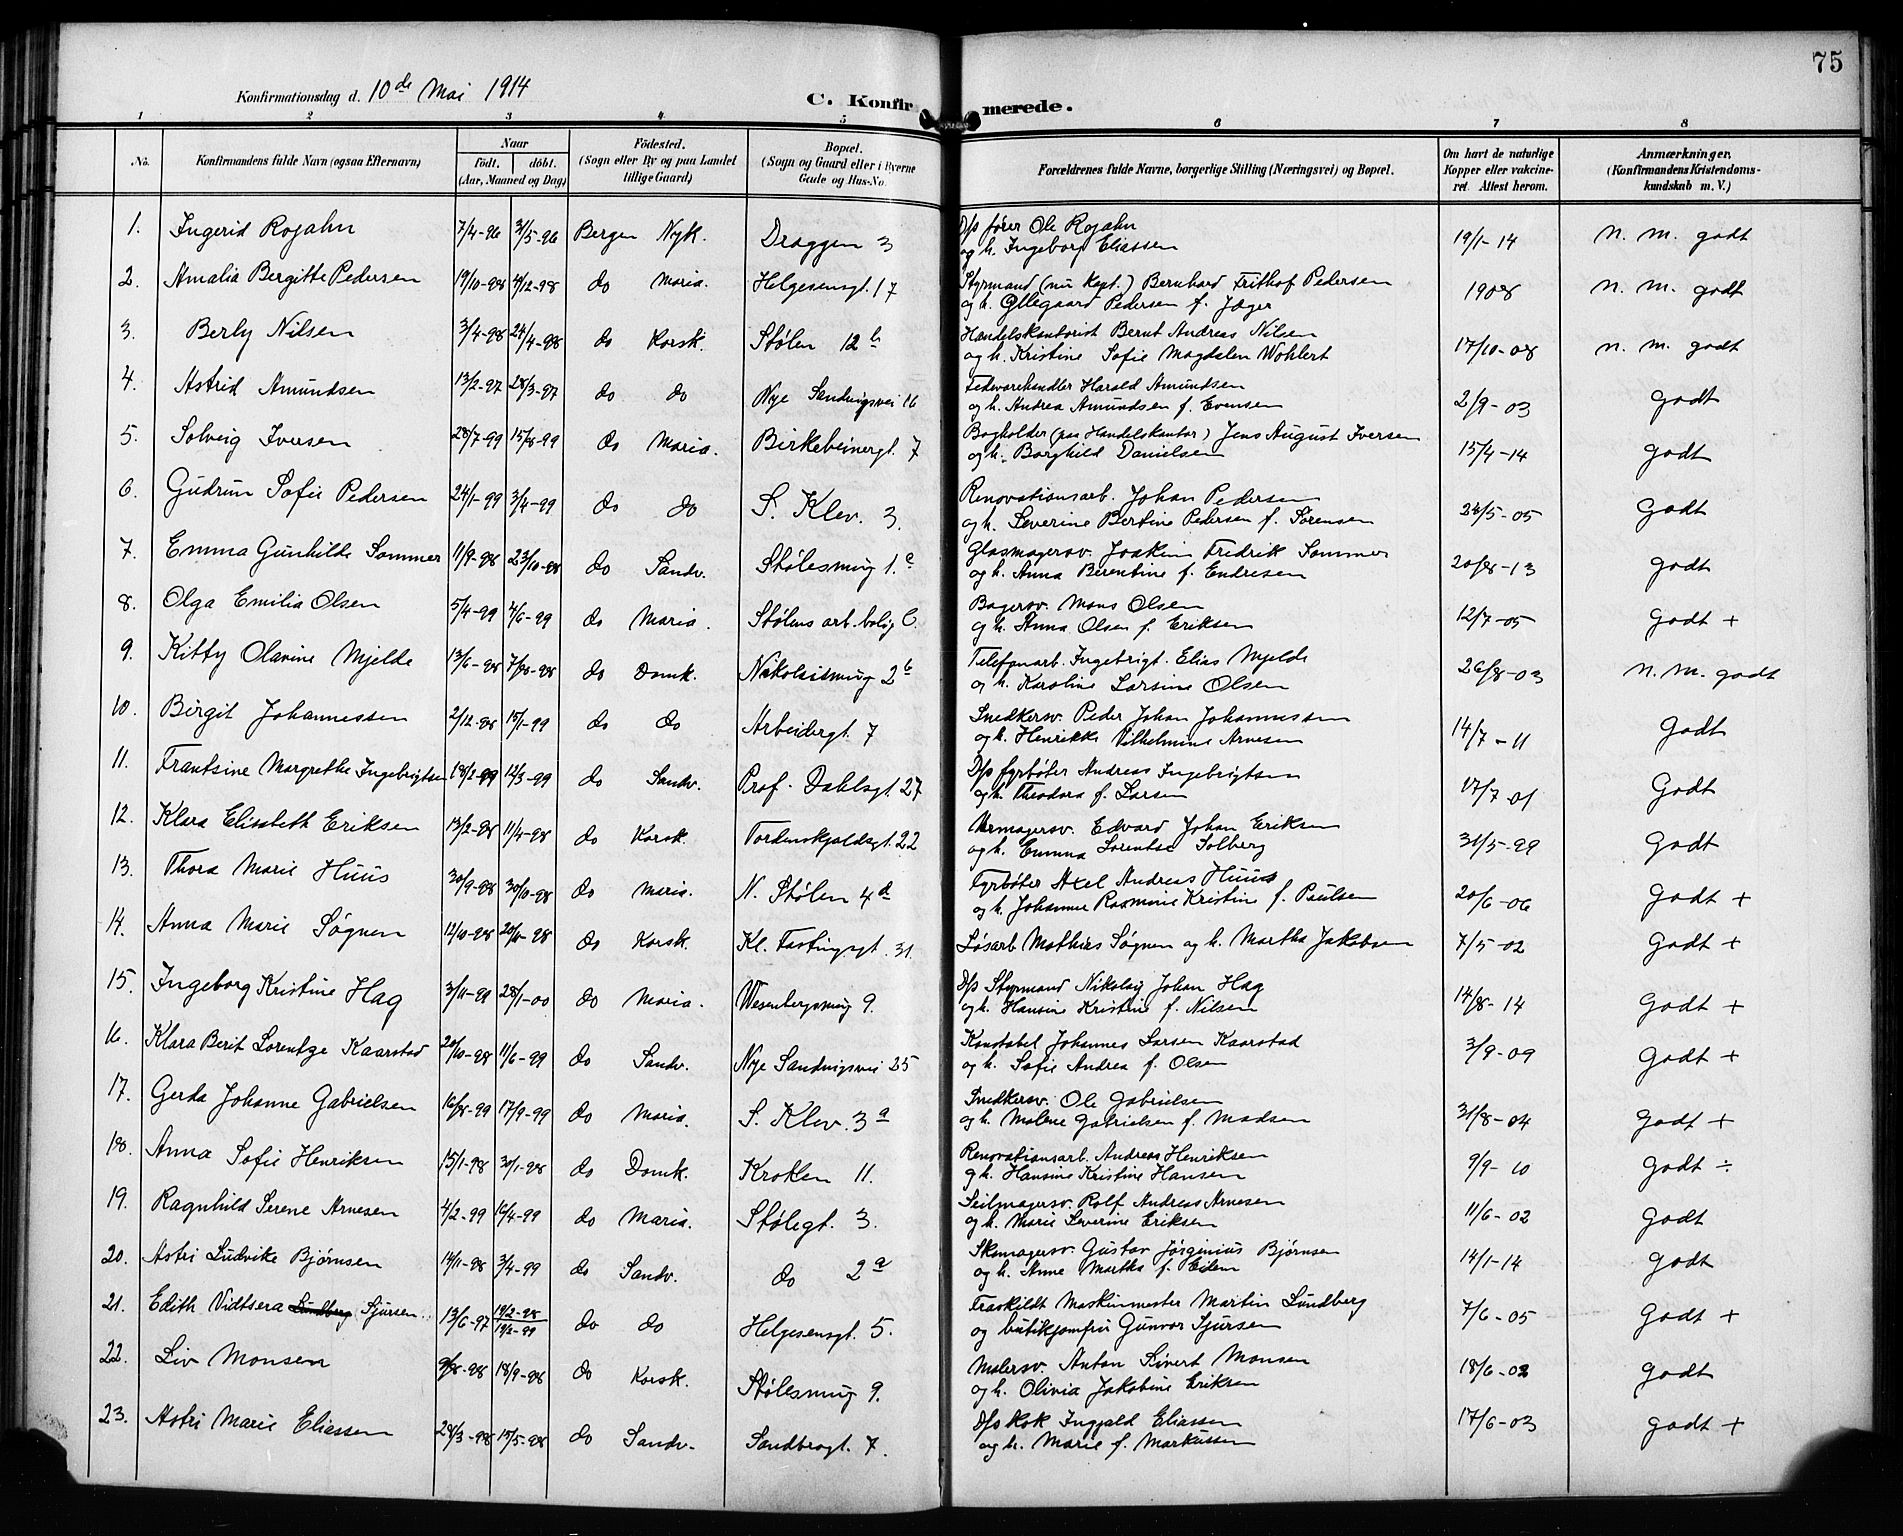 75
Konfirmationsdag d. 10de Mai 1914
C. Konfirmerede.
1 2 3 4 5 6 7 8
No. Konfirmandens fulde Navn (ogsaa Efternavn) Naar født. døbt. (Aar, Maaned og Dag) Fødested. (Sogn eller By og paa Landet tillige Gaard) Bopæl. (Sogn og Gaard eller i Byerne Gade og Hus-No. Forældrenes fulde Navne, borgerlige Stilling (Næringsvei) og Bopæl. Om havt de naturlige Kopper eller vakcineret. Attest herom. Anmærkninger. (Konfirmandens Kristendomskundskab m. V.)
1. Ingerid Rojahn 7/4-96 3/5-96 Bergen Nyk. Draggen 3 D/s fører Ole Rojahn 19/1-14 n. m. godt
og h. Ingeborg Eliassen
2. Amalia Bergitte Pedersen 19/10-98 4/12-98 do Maria. Helgesensgt. 17 Styrmand (nu Kapt.) Bernhard Frithof Pedersen 1908 n. m. godt
og h. Ollegaard Pedersen f. Jæger
3. Berly Nilsen 3/4-98 24/4-98 do Korsk. Stølen 12 b Handelskontorist Bernt Andreas Nilsen 17/10-08 n. m. godt
og h. Kristine Sofie Magdalen Wohlert
4. Astrid Amundsen 13/2-97 28/3-97 do do Nye Sandvigsvei 16 Fedevarehandler Harald Amundsen 2/9-03 godt
og h. Andrea Amundsen f. Evensen
5. Solveig Iversen 28/7-99 15/8-99 do Maria. Birkebeinergt. 7 Bogholder (paa Handelskontor) Jens August Iversen 15/4-14 godt
og h. Borghild Danielsen
6. Gudrun Sofie Pedersen 24/1-99 3/4-99 do do S. Klev. 3. Renovationsarb. Johan Pedersen 24/5-05 godt
og h. Severine Bertine Pedersen f. Sørensen
7. Emma Gunhilde Sommer 11/9-98 23/10-98 do Sandv. Stølesmug 1.a Glasmagersv. Joakim Fredrik Sommer 20/8-13 godt
og h. Anna Berentine f. Endresen
8. Olga Emilia Olsen 5/4-99 4/6-99 do Maria. Stølens arb. bolig C. Bagersv. Mons Olsen 12/7-05 godt +
og h. Anna Olsen f. Eriksen
9. Kitty Olavine Mjelde 13/6-98 7/8-98 do Domk. Nikolaismug 2 b Telefonarb. Ingebrigt Elias Mjelde 26/8-03 n. m. godt
og h. Karoline Larsine Olsen
10. Birgit Johannessen 2/12-98 15/1-99 do do Arbeidergt. 7 Snedkersv. Peder Johan Johannessen 14/7-11 godt
og h. Henrikke Vilhelmine Arnesen
11. Frantsine Margrethe Ingebrigtsen 18/2-99 12/3-99 do Sandv. Prof. Dahlsgt 27 D/s fyrbøter Andreas Ingebrigtsen 17/7-01 Godt
og h. Theodora f. Larsen
12. Klara Elisabeth Eriksen 13/2-98 11/4-98 do Korsk. Tordenskjoldsgt. 22 Urmagersv. Edvard Johan Eriksen 31/5-99 Godt
og h. Emma Lorentse Solberg
13. Thora Marie Huus 30/9-98 30/10-98 do Maria. N. Stølen 4 d Fyrbøter Axel Andreas Huus 20/6-06 godt +
og h. Johanne Rasmine Kristine f. Paulsen
14. Anna Marie Søgnen 12/10-98 20/11-98 do Korsk. Kl. Fastingsgt. 31. Løsarb Mathias Søgnen og h. Martha Jakobsen 7/5-02 godt +
15. Ingeborg Kristine Hag 3/11-99 28/1-00 do Maria. Wesenbergsmug 9. D/s Styrmand Nikolay Johan Hag 14/8-14 godt +
og h. Hansine Kristine f. Nilsen
16. Klara Berit Lorentze Kaarstad 20/10-98 11/6-99 do Sandv. Nye Sandvigsvei 25 Konstabel Johannes Larsen Kaarstad 3/9-09 godt +
og h. Sofie Andrea f. Olsen
17. Gerda Johanne Gabrielsen 16/8-99 17/9-99 do Maria. S. Klev. 3 a Snedkersv. Ole Gabrielsen 31/8-04 godt +
og h. Malene Gabrielsen f. Madsen
18. Anna Sofie Henriksen 15/1-98 30/1-98 do Domk. Kroken 11. Renovationsarb. Andreas Henriksen 9/9-10 godt ÷
og h. Hansine Kristine Hansen
19. Ragnhild Serene Arnesen 4/2-99 16/4-99 do Maria. Stølegt. 3. Seilmagersv. Rolf Andreas Arnesen 11/6-02 godt
og h. Marie Severine Eriksen
20. Astri Ludvike Bjørnsen 14/11-98 3/4-99 do Sandv. do 2 a Skomagersv. Gustav Jørginius Bjørnsen 14/1-14 godt
og h. Anne Martha f. Eilem
21. Edith Vidtsera Lundberg Sjursen 13/6-97 19/2-98 do do Helgesensgt. 5. Fraskildt Maskinmester Martin Lundberg 7/6-05 godt +
og butikjomfru Gunvor Sjursen
22. Liv Monsen 9/8-98 18/9-98 do Korsk. Stølesmug 9. Malersv Anton Sivert Monsen 18/6-02 godt
og h. Olivia Jakobine Eriksen
23. Astri Marie Eliassen 28/3-98 15/5-98 do Sandv. Sandbrogt. 7. D/s kok Inggald Eliassen 17/6-03 godt +
og h. Marie f. Markussen